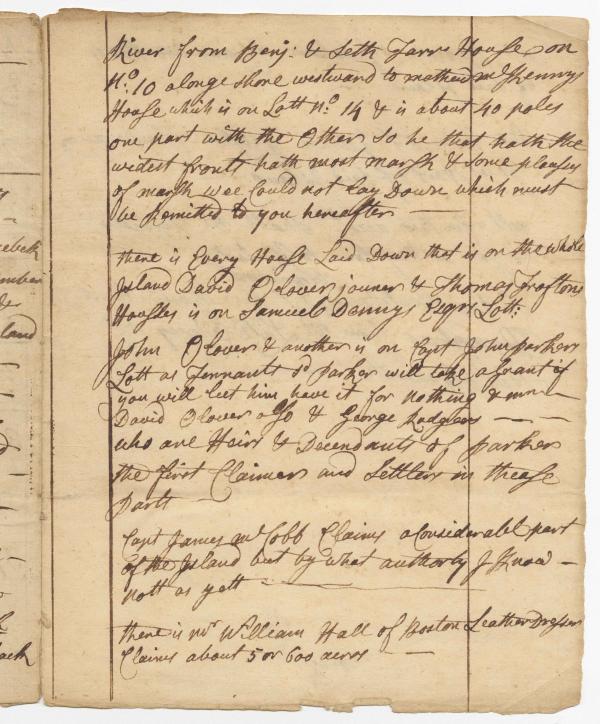 River from Benj: & Seth Tarrs House on
No. 10 alonge shore westward to mathew mcKennys
House which is on Lott No. 14 & is about 40 poles
one part with the Other so he that hath the
widest fronts hath most marsh & some
of marsh wee Could not lay Down which must
be Remitted to you hereafter —
there is Every House Laid Down that is on the whole
Island David Olover joiner & Thomas
Houses is on Samuel Dennys Esqrs Lott:
John Olover & another is on Capt John parkers
Lott as Tennants sd Parker will take a Grant if
you will lett him have it for nothing & mr —
David Olover also & George Rodgers — —
who are Heirs & Decendants of parker
the first Claimer and Settler in thease
parts —
Capt James mcCobb Claims a Considerabl part
of the Island but by what authority I Know —
nott as yett —
there is mr William Hall of Boston Leather Dresser
Claims about 5 or 600 acres — —
cebeck
mber
land
back